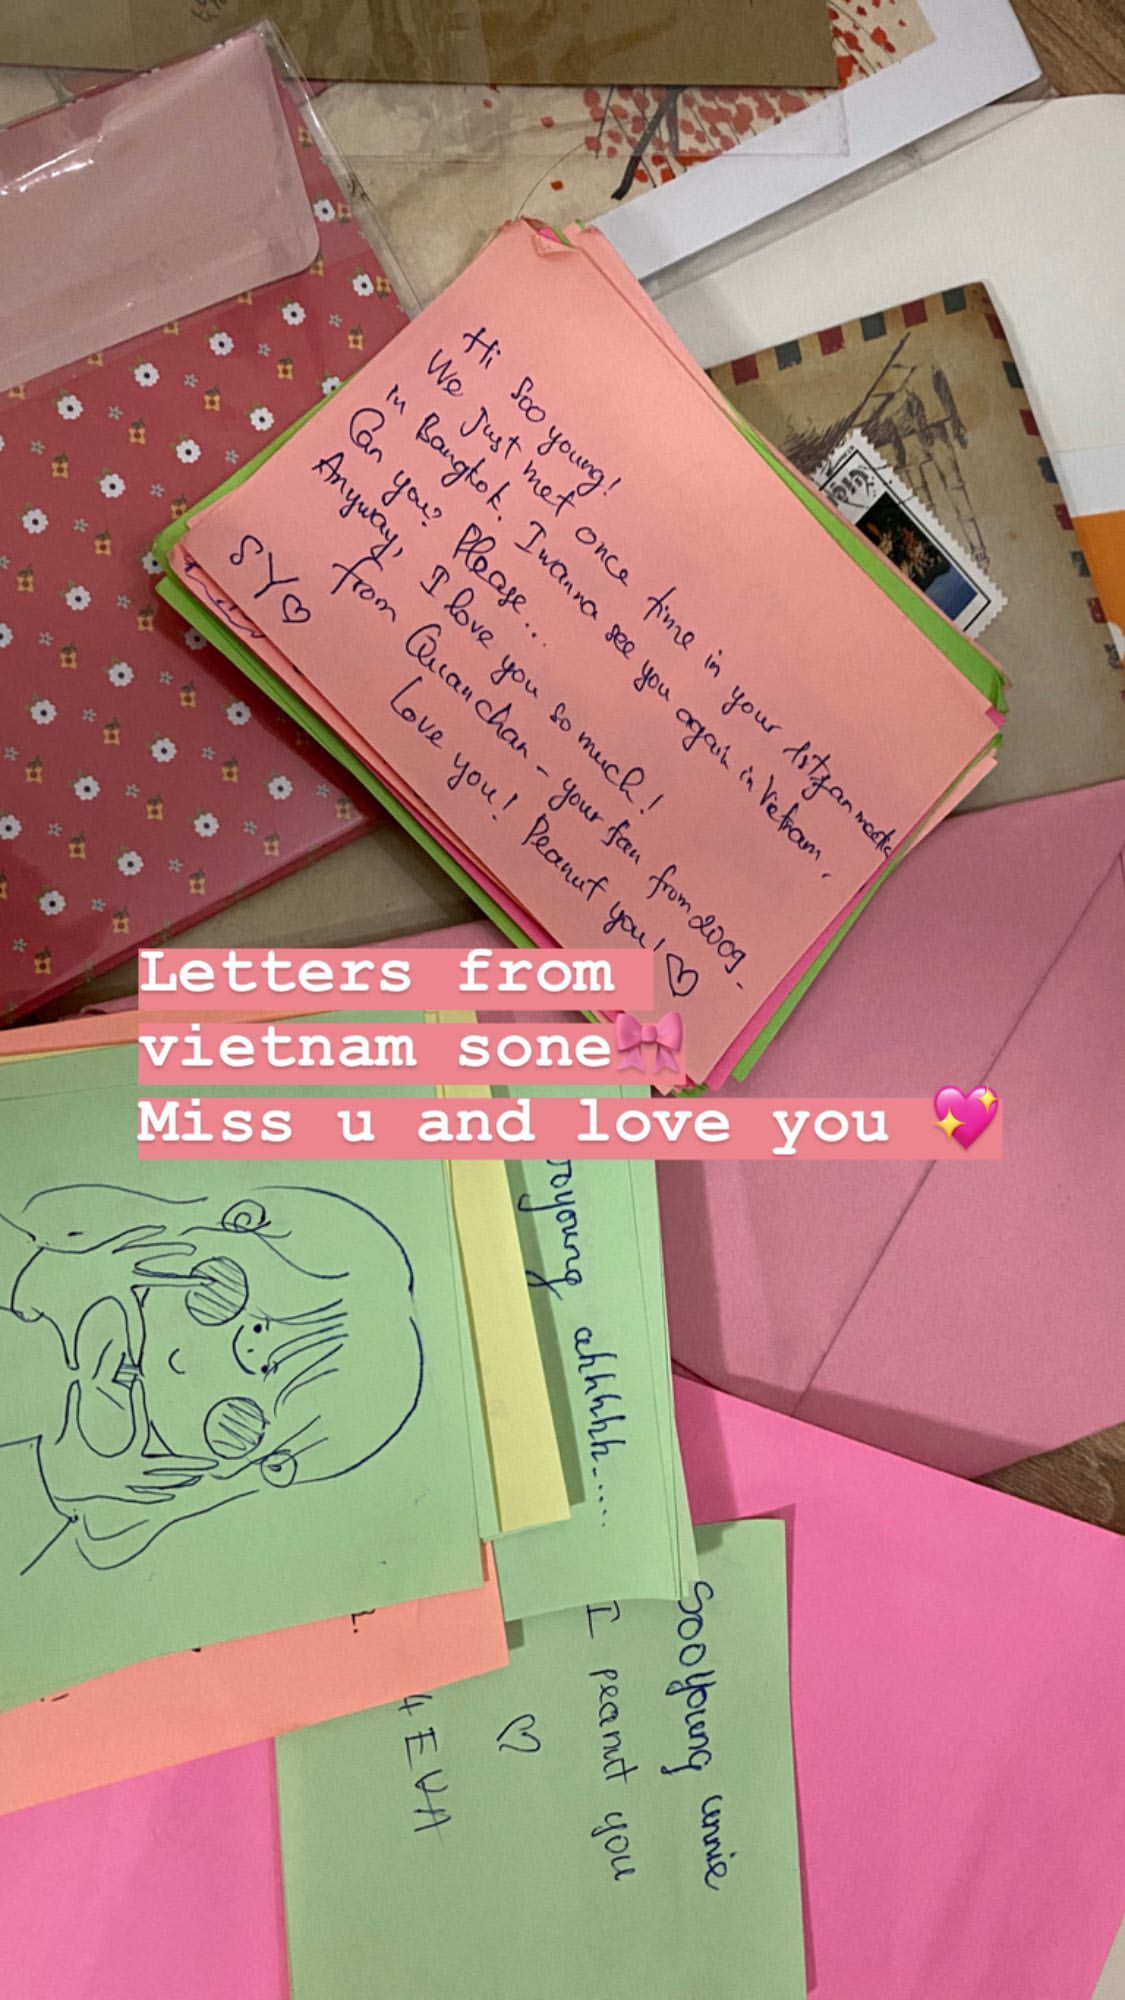 Hi Sooyoung!
We just met once time in your 1st fan
in Bangkok. I wanna see you again in Vietnam.
Can you? Please...
Anyway, I love you so much!
from Quanchan - your fan from 2009.
Love you! Peanut you! ♡
SY♡
Letters from
vietnam sone🎀
Miss u and love you 💖
ooyoung ahhhhh.....
Sooyoung unnie
I peanut you
♡
4 EVA